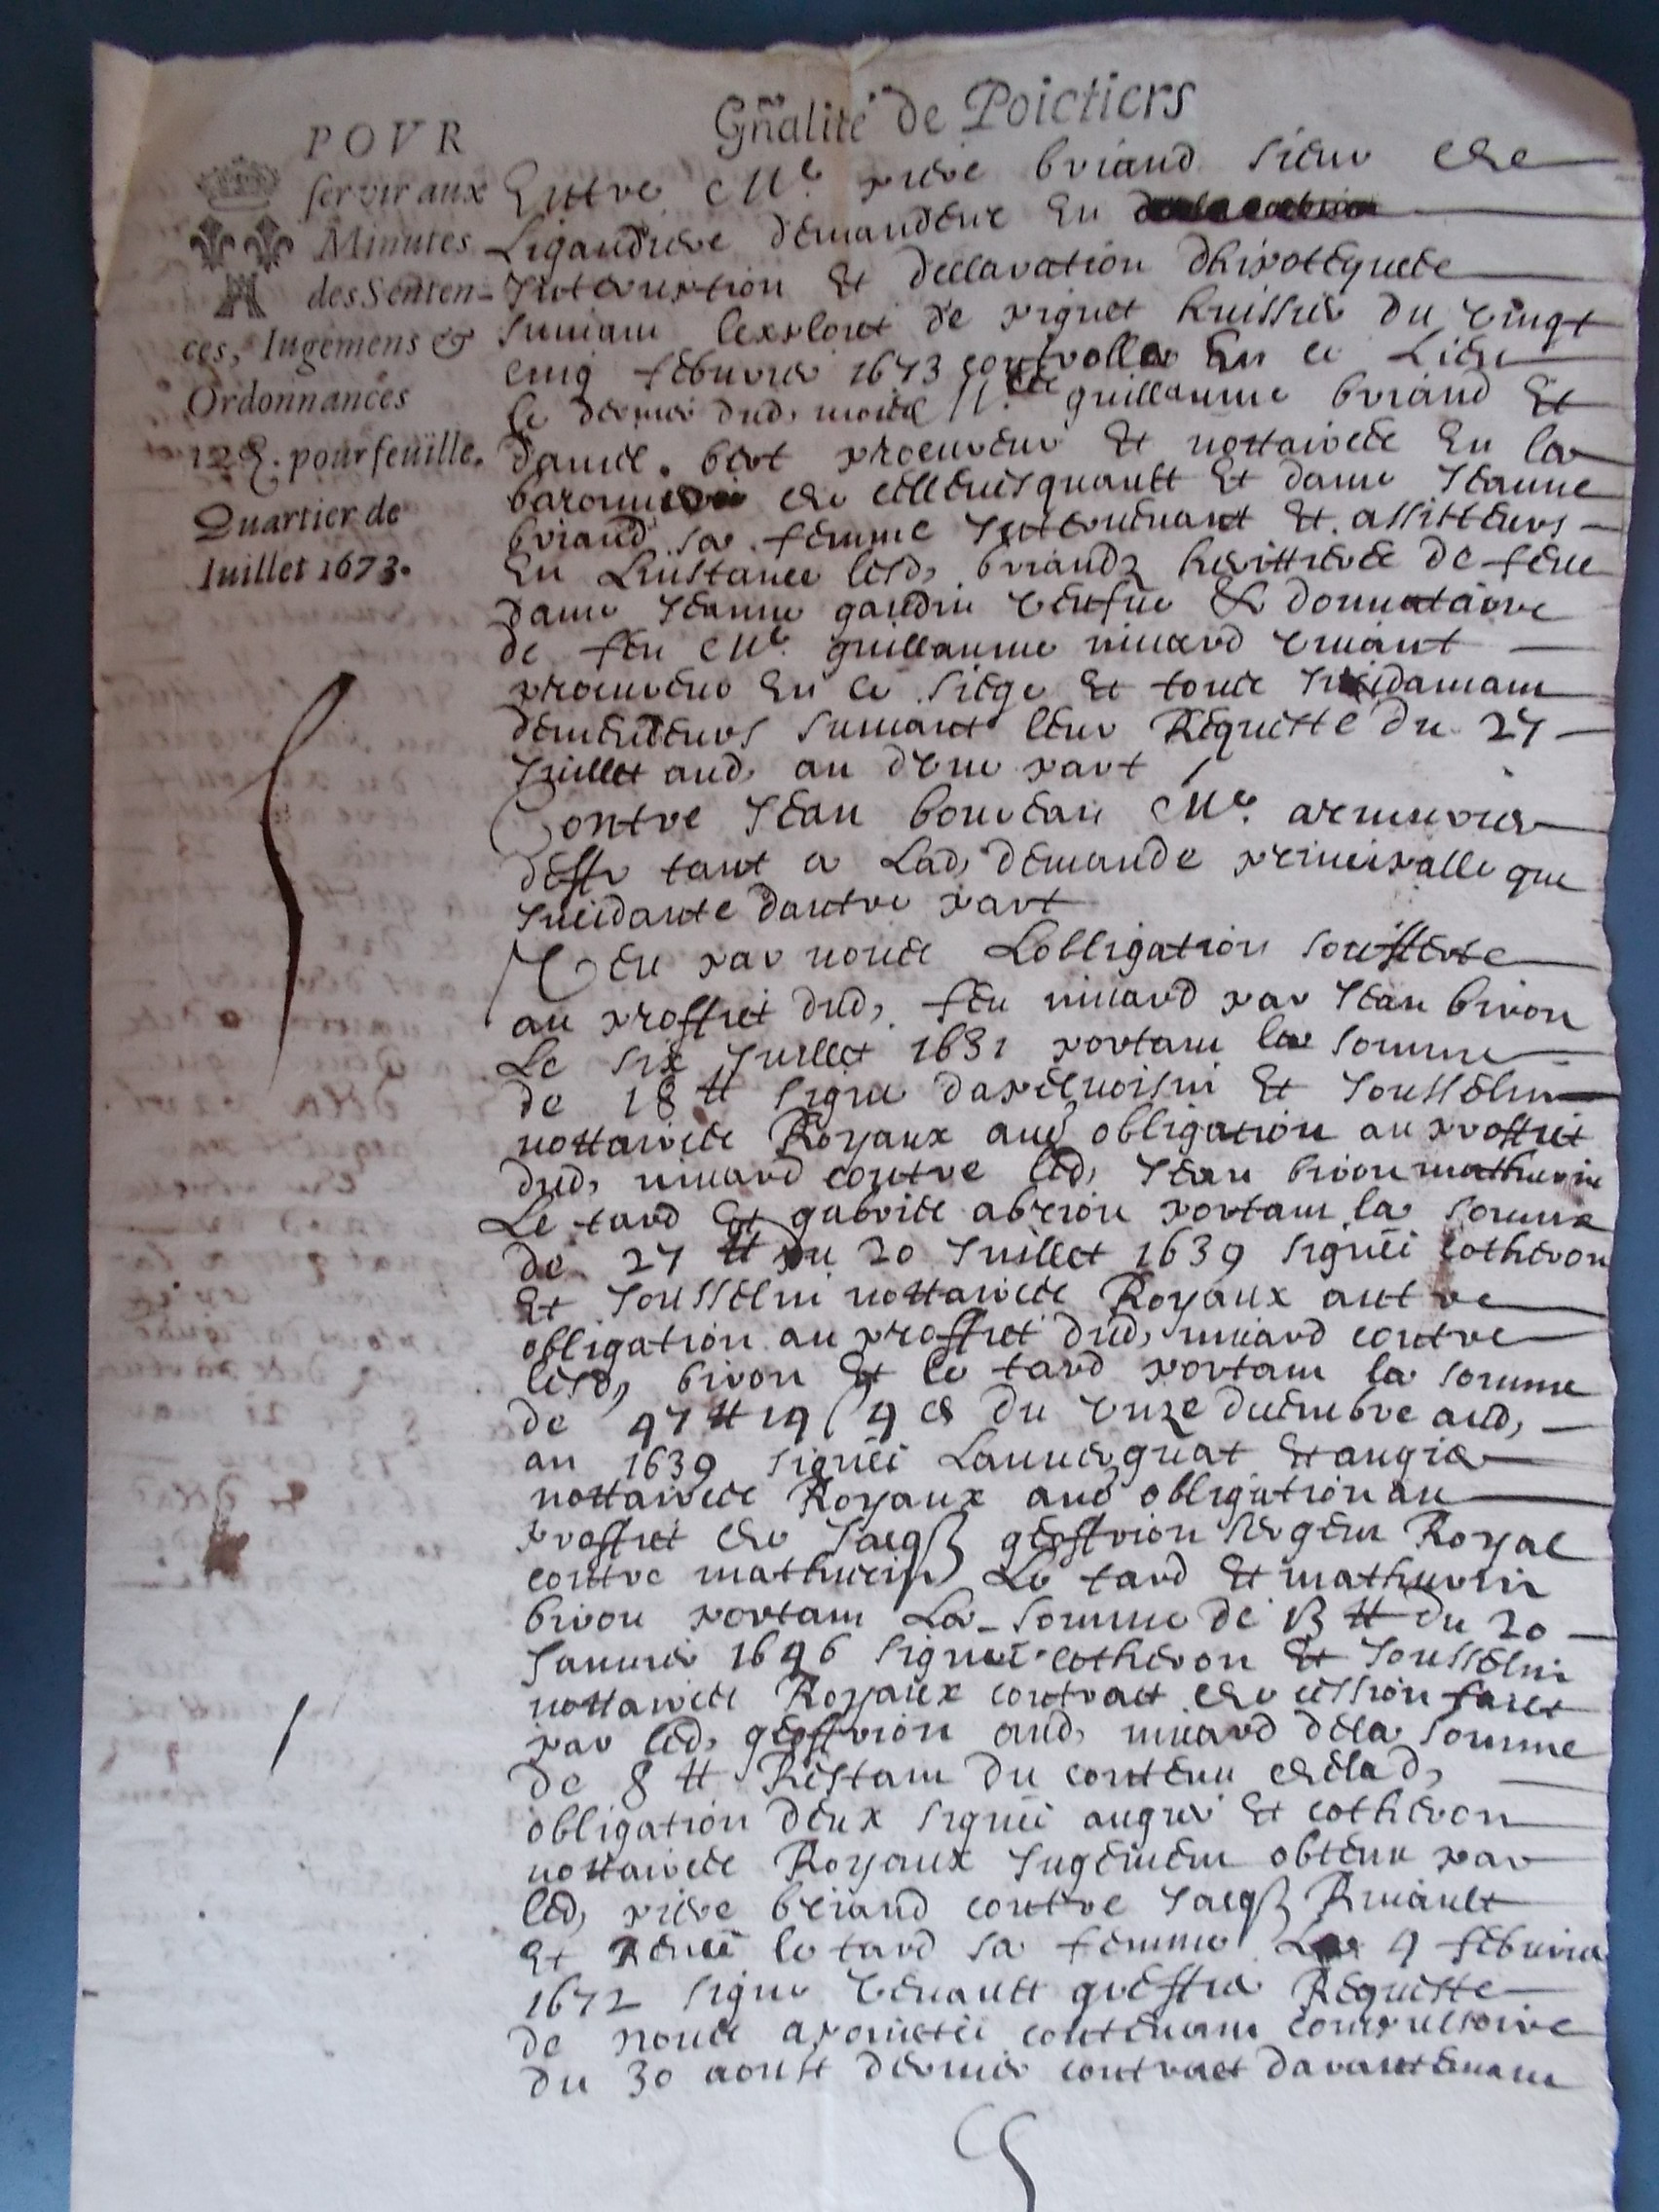 Gñalité de Poictiers
POVR
servir aux
Minutes
des Senten-
ces, Iugemens &
Ordonnances
pour feüille.
Quartier de
Iuillet 1673.
Entre Me piere briand sieur de
Ligaudiere demandeur En
Interuption Et declaration dhipotecque
suivant lexploict de piguet huissier du vingt
cinq febuvrier 1673 controllé En ce Lieu
le dernier dud, mois guillaume briand Et
daniel bert procureur Et nottaire En la
baronnie de Et dame Jeanne
briand sa femme Intervenant Et
En Linstance lesd, briandz herittiere de feue
dame Jeanne gaudin veufue & donnataire
de feu Me guillaume minard vivant
procureur En ce siege Et tous Incidamam
demendeurs suivant leur Requeste du 27
Juillet aud, an dune part
Contre Jean boureau Me armurier
deffr tant a Lad, demande principalle que
Incidante dautre part
Veu par nous Lobligation
au proffict dud, feu minard par Jean biron
Le six Juillet 1631 portam la somme
de 18 tt signé Et Jousselin
nottaire Royaux aue obligation au proffict
dud, minard contre led, Jean biron mathurin
Le tard Et gabriel portam la somme
de 27 tt du 20 Juillet 1639 signée cotheron
Et Jousselin nottaire Royaux autre
obligation au proffict dud, minard contre
lesd, biron Et le tard portam la somme
de 47 tt 19 s du unze decembre aud,
an 1639 signée Et augier
nottaire Royaux aue obligation au
proffict de Jacq geffrion sergem Royal
contre mathurin Le tard Et mathurin
biron portam La somme de 13 tt du 20
Janvier 1646 signée cotheron Et Jousselin
nottaire Royaux contract de cession faict
par led, geffrion aud, minard dela somme
de 8 tt Restam du contenu en lad,
obligation deux signée augier Et cotheron
nottaire Royaux Jugemem obtenu par
led, piere briand contre Jacq Ruiault
Et Renée le tard sa femme Le 4 febuvrier
1672 signé greffier Requeste
de nous contenam compulsoire
du 30 aoust dernier contract